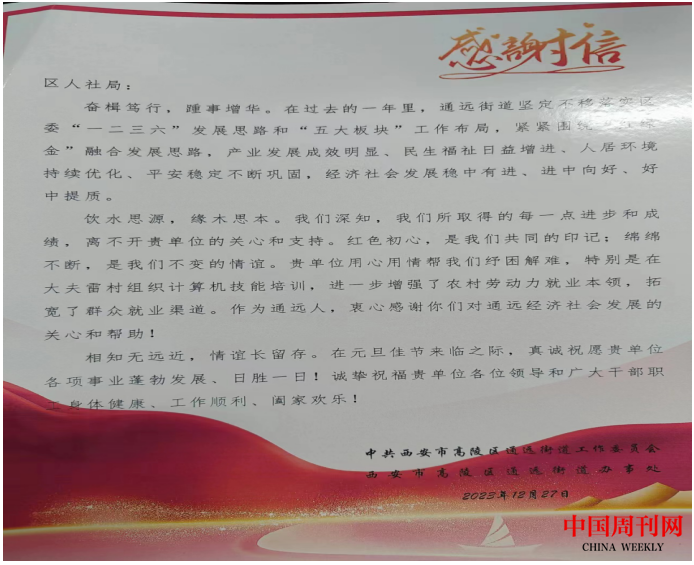 感謝信
区人社局：
奋楫笃行，踵事增华。在过去的一年里，通远街道坚定不移落实区
委“一二三六”发展思路和“五大板块”工作布局，紧紧围绕
金”融合发展思路，产业发展成效明显、民生福祉日益增进、人居环境
持续优化、平安稳定不断巩固，经济社会发展稳中有进、进中向好、好
中提质。
饮水思源，缘木思本。我们深知，我们所取得的每一点进步和成
绩，离不开贵单位的关心和支持。红色初心，是我们共同的印记；绵绵
不断，是我们不变的情谊。贵单位用心用情帮我们纾困解难，特别是在
大夫雷村组织计算机技能培训，进一步增强了农村劳动力就业本领，拓
宽了群众就业渠道。作为通远人，衷心感谢你们对通远经济社会发展的
关心和帮助！
相知无远近，情谊长留存。在元旦佳节来临之际，真诚祝愿贵单位
各项事业蓬勃发展、日胜一日！诚挚祝福贵单位各位领导和广大干部职
工身体健康、工作顺利、阖家欢乐！
中共西安市高陵区通远街道工作委员会
西安市高陵区通远街道办事处
2023年12月27日
中国周刊网
CHINA WEEKLY